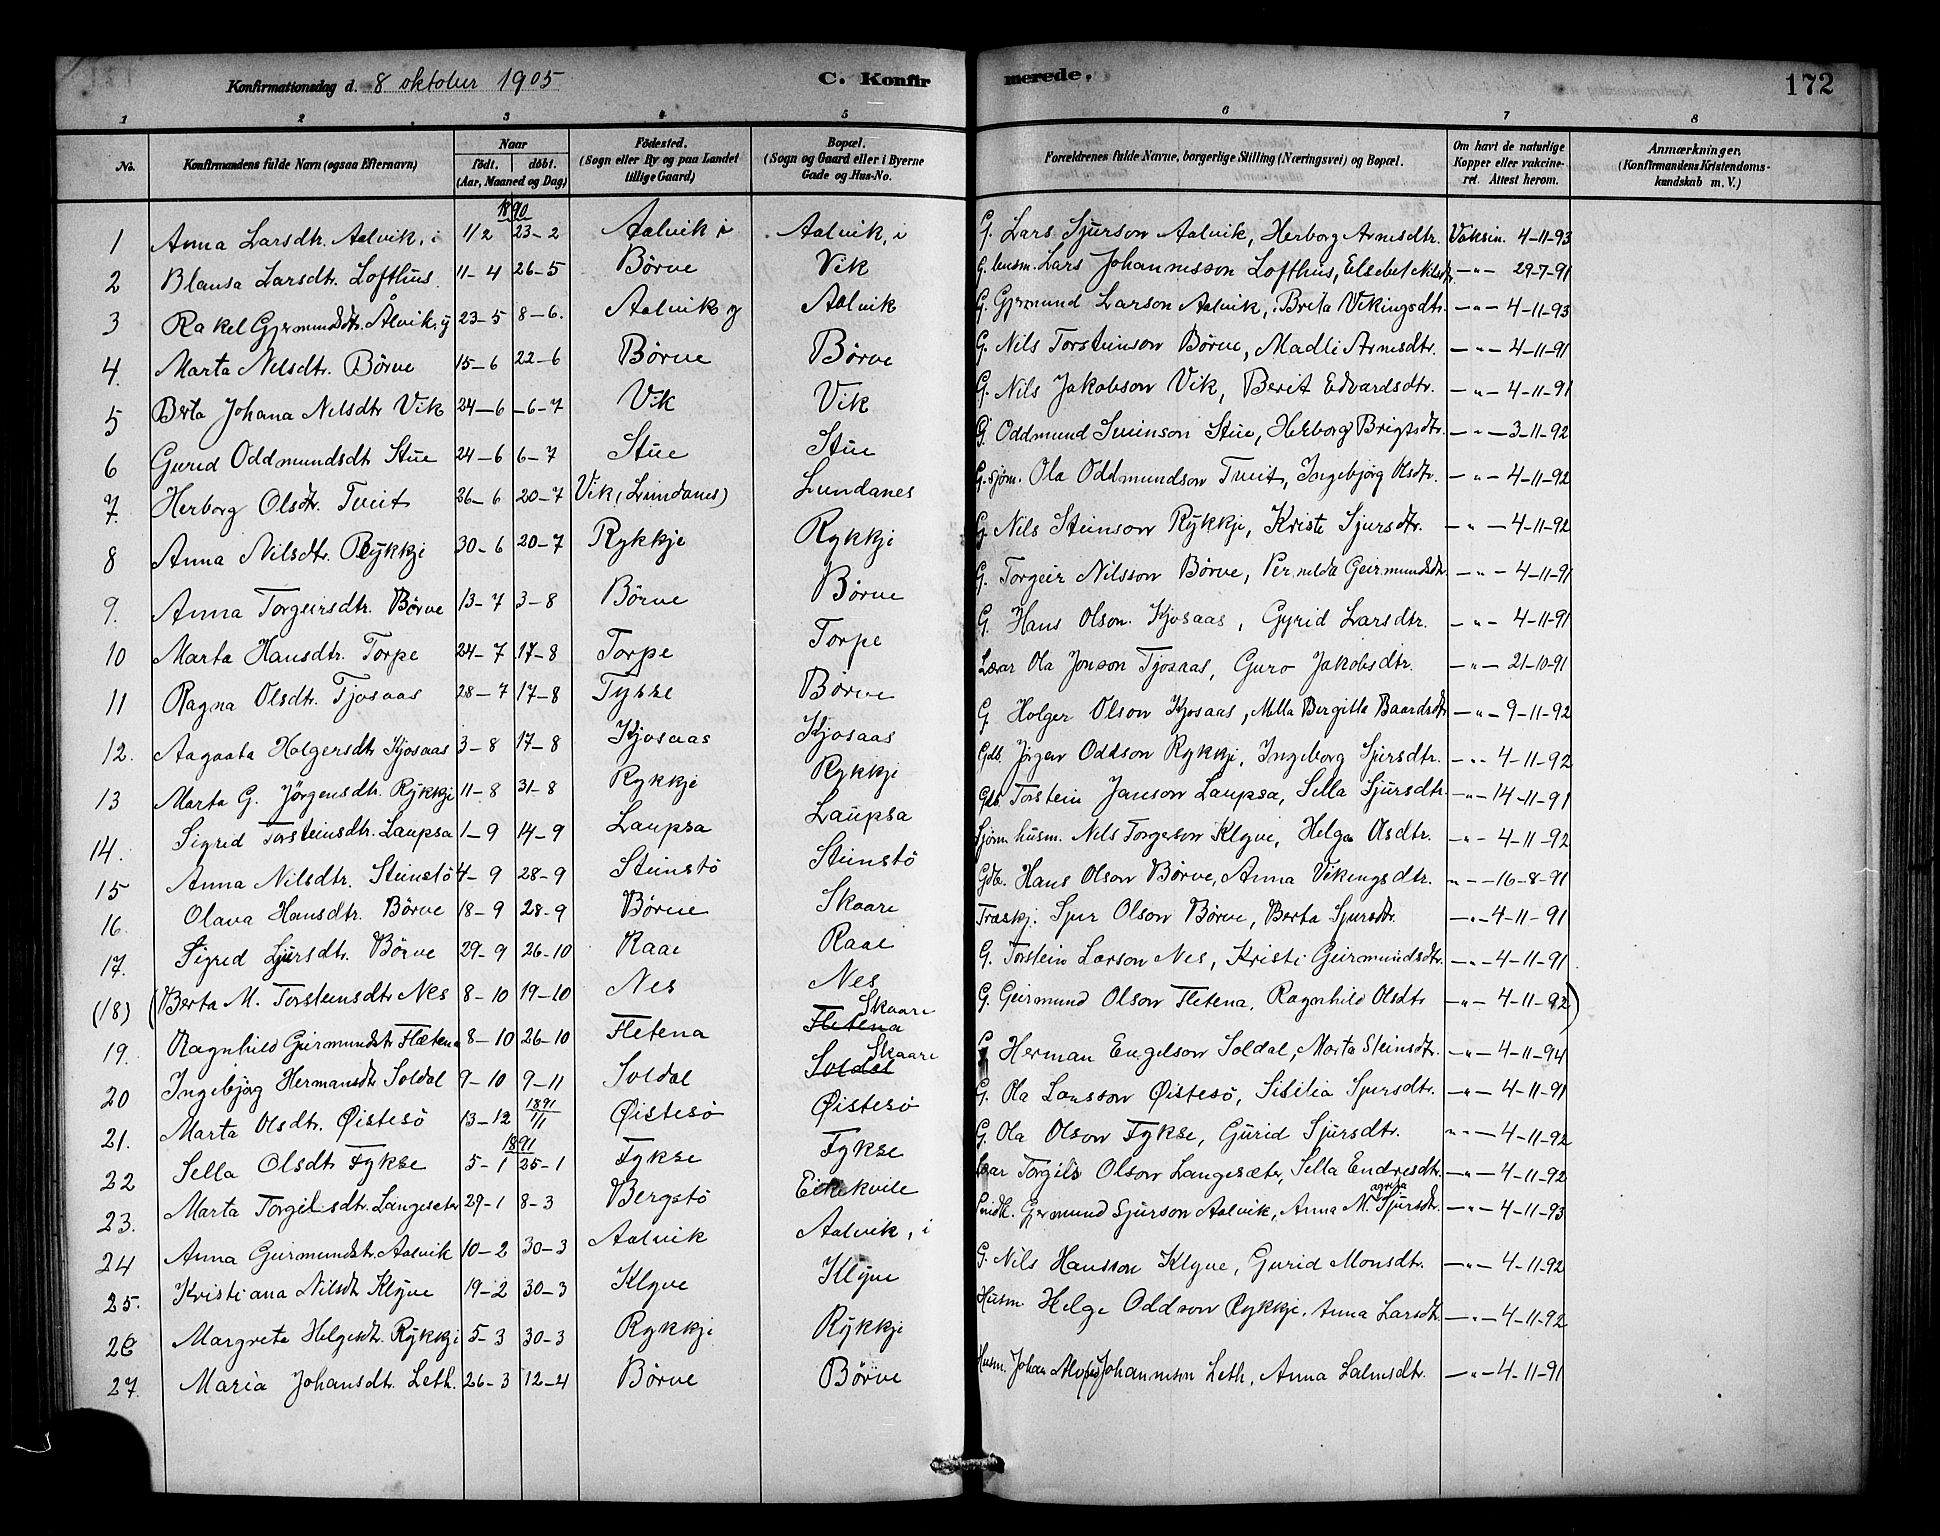 Konfirmationsdag d. 8 oktober 1905 C. Konfir merede. 172
1 2 3 4 5 6 7 8
No. Konfirmandens fulde Navn (ogsaa Efternavn) Naar födt. döbt. (Aar, Maaned og Dag) Födested. (Sogn eller By og paa Landet tillige Gaard) Bopæl. (Sogn og Gaard eller i Byerne Gade og Hus-No. Forældrenes fulde Navne, borgerlige Stilling (Næringsvei) og Bopæl. Om havt de naturlige Kopper eller vakcineret. Attest herom. Anmærkninger, (Konfirmandens Kristendomskundskab m. V.)
1890
1 Anna Larsdtr. Aalvik, i 1/2 23-2 Aalvik i Aalvik, i G. Lars Sjurson Aalvik, Herborg Arnesdtr. Vaksin. 4-11-93
2 Blansa Larsdtr. Lofthus 11-4 26-5 Börve Vik G. husm. Lars Johannesson Lofthus, Elsebet Nilsdtr — " — 29-7-91
3 Rakel Gjermundsdtr. Ålvik, y 23-5 8-6. Aalvik y Aalvik G. Gjermund Larson Aalvik, Brita Vikingsdtr. — " — 4-11-93
4. Marta Nilsdtr. Börve 15-6 22-6 Börve Börve G. Nils Torsteinson Börve, Madli Arnesdtr. — " — 4-11-91
5 Berta Johana Nilsdtr Vik 24-6 -6-7 Vik Vik G. Nils Jakobson Vik, Berit Edvardsdtr. — " — 4-11-91
6 Gurid Oddmundsdtr Stue 24-6 6-7 Stue Stue G. Oddmund Sveinson Stue, Herborg Brigtsdtr. — " — 3-11-92
7. Herborg Olsdtr. Tveit 26-6 20-7 Vik (Lundanes) Lundanes G. sjöm. Ola Oddmundson Tveit, Ingebjörg Olsdtr. — " — 4-11-92
8 Anna Nilsdtr. Rykkje 30-6 20-7 Rykkje Rykkje G. Nils Steinson Rykkje, Kriste Sjursdtr. — " — 4-11-92
9. Anna Torgeirsdtr. Börve 13-7 3-8 Börve Börve G. Torgeir Nilsson Börve, Pernilda Geirmundsdtr — " — 4-11-91
10 Marta Hansdtr. Torpe 24-7 17-8 Torpe Torpe G. Hans Olson Kjosaas, Gyrid Larsdtr. — " — 4-11-91
11 Ragna Olsdtr. Tjosaas 28-7 17-8 Tysse Börve Lærar Ola Jonson Tjosaas, Guro Jakobsdtr. — " — 21-10-91
12. Aagaata Holgersdtr Kjosaas 3-8 17-8 Kjosaas Kjosaas G. Holger Olson Kjosaas, Mella Bergitta Baardsdtr — " — 9-11-92
13 Marta G. Jörgensdtr. Rykkje 11-8 31-8 Rykkje Rykkje Gdb. Jörgen Oddson Rykkje, Ingeborg Sjursdtr. — " — 4-11-92
14. Sigrid Torsteinsdtr. Laupsa 1-9 14-9 Laupsa Laupsa Gdb. Torstein Janson Laupsa, Sella Sjursdtr — " — 14-11-91
15 Anna Nilsdtr. Steinstö 4-9 28-9 Steinstö Steinstö Sjöm husm. Nils Torgerson Klyve, Helga Olsdtr. — " — 4-11-92
16. Olava Hansdtr. Börve 18-9 28-9 Börve Skaare Gdb. Hans Olson Börve, Anna Vikingsdtr. — " — 16-8-91
17. Sigrid Sjursdtr. Börve 29-9 26-10 Raae Raae Træskj. Sjur Olson Börve, Berta Sjursdtr. — " — 4-11-91
(18) (Berta M. Torsteinsdtr Nes 8-10 19-10 Nes Nes G. Torstein Larson Nes, Kristi Geirmundsdtr. — " — 4-11-91
19. Ragnhild Geirmundsdtr Flætena 8-10 26-10 Fletena Fletena Skaare G. Geirmund Olson Fletena, Ragnhild Olsdtr — " — 4-11-92)
20 Ingebjörg Hermansdtr Soldal 9-10 9-11 Soldal Soldal Skaare G Herman Engelson Soldal, Marta Steinsdtr. — " — 4-11-94
21. Marta Olsdtr. Øistesö 13-12 1891 1/1 Øistesö Øistesö G. Ola Larsson Øistesö, Sisilia Sjursdtr. — " — 4-11-91
1891
22 Sella Olsdtr Fykse 5-1 25-1 Fykse Fykse G. Ola Olson Fykse, Gurid Sjursdtr. — " — 4-11-92
23. Marta Torgilsdtr. Langeseter 29-1 8-3 Bergstö Eikekvile Lærar Torgils Olson Langesæter, Sella Endresdtr. — " — 4-11-92
24 Anna Geirmundsdtr. Aalvik 10-2 30-3 Aalvik Aalvik, i Gjermund Sjurson Aalvik, Anna M. Sjursdtr. — " — 4-11-93
25. Kristiana Nilsdtr Klyve 19-2 30-3 Klyve Klyve G. Nils Hansson Klyve, Gurid Monsdtr. — " — 4-11-92
26 Margreta Helgesdtr. Rykkje 5-3 30-3 Rykkje Rykkje Husm Helge Oddson Rykkje, Anna Larsdtr — " — 4-11-92
27. Maria Johansdtr. Leth. 26-3 12-4 Börve Börve Husm. Johan Johannesen Leth, Anna Salmsdtr. — " — 4-11-91